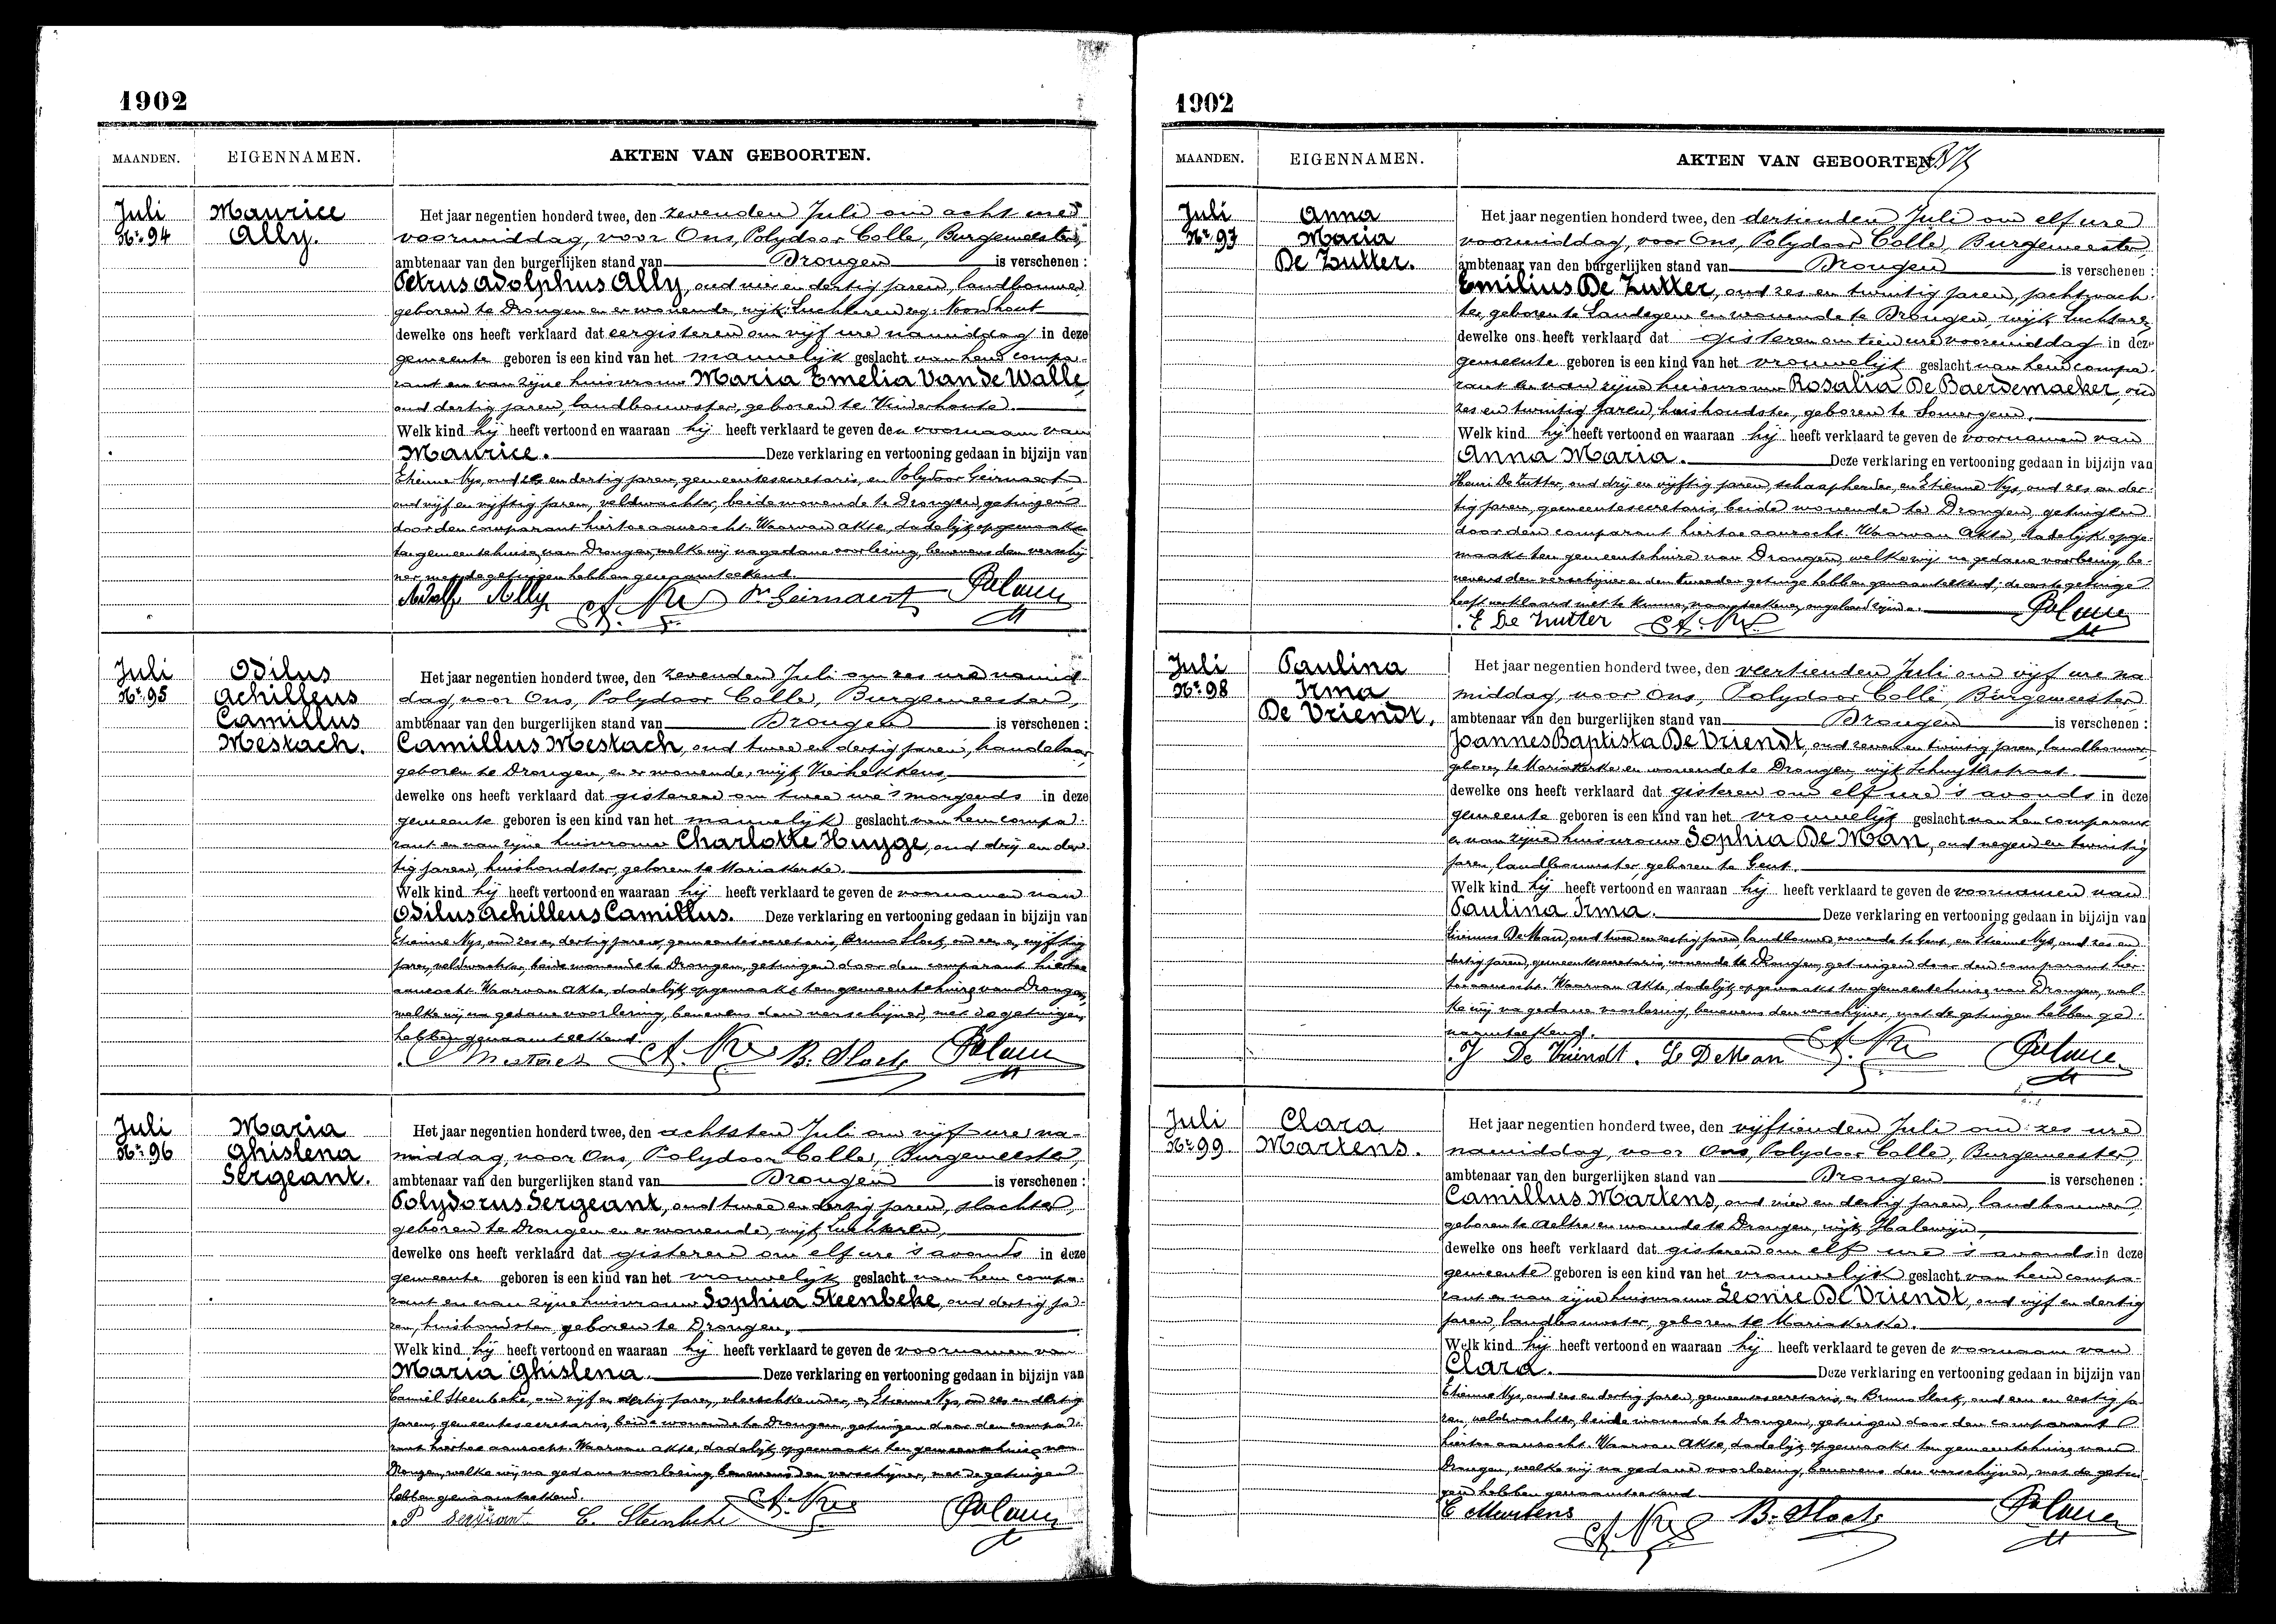 1902
MAANDEN. EIGENNAMEN. AKTEN VAN GEBOORTEN.
Juli
Nr. 94
Maurice
Ally.
Het jaar negentien honderd twee, den zevenden Juli om acht ure
voormiddag, voor Ons, Polydoor Colle, Burgemeester,
ambtenaar van den burgerlijken stand van Drongen is verschenen :
Petrus Adolphus Ally, oud vier en dertig jaren, landbouwer,
geboren te Drongen en er wonende, wijk Luchteren, zeg: Noordhout
dewelke ons heeft verklaard dat eergisteren om vijf ure namiddag in deze
gemeente geboren is een kind van het mannelijk geslacht van hem compa-
rant en van zijne huisvrouw Maria Emelia Van de Walle,
oud dertig jaren, landbouwster, geboren te Vinderhoute.
Welk kind hij heeft vertoond en waaraan hij heeft verklaard te geven den voornaam van
Maurice. Deze verklaring en vertooning gedaan in bijzijn van
Etienne Nys, oud zes en dertig jaren, gemeentesecretaris, en Polydoor Geirnaert,
oud vijf en vijftig jaren, veldwachter, beide wonende te Drongen, getuigen
door den comparant hiertoe aanzocht. Waarvan akte, dadelijk opgemaakt
ten gemeentehuize van Drongen, welke wij na gedane voorlezing, benevens den verschij-
ner, met de getuigen hebben genaamteekend.
Adolf Ally Et. Nys Geirnaert Pol. Colle
Juli
Nr. 95
Odilus
Achilleus
Camillus
Mestach.
Het jaar negentien honderd twee, den zevenden Juli om zes ure namid-
dag, voor Ons, Polydoor Colle, Burgemeester,
ambtenaar van den burgerlijken stand van Drongen is verschenen :
Camillus Mestach, oud twee en dertig jaren, handelaar,
geboren te Drongen, en er wonende, wijk Vierhekkens
dewelke ons heeft verklaard dat gisteren om twee ure 's morgends in deze
gemeente geboren is een kind van het mannelijk geslacht van hem compa-
rant en van zijne huisvrouw Charlotte Huyge, oud drij en der-
tig jaren, huishoudster, geboren te Mariakerke.
Welk kind hij heeft vertoond en waaraan hij heeft verklaard te geven de voornamen van
Odilus Achilleus Camillus. Deze verklaring en vertooning gedaan in bijzijn van
Etienne Nys, oud zes en dertig jaren, gemeentesecretaris, Bruno Sloct, oud een en vijftig
jaren, veldwachter, beide wonende te Drongen, getuigen door den comparant hiertoe
aanzocht. Waarvan akte, dadelijk opgemaakt ten gemeentehuize van Drongen,
welke wij na gedane voorlezing, benevens den verschijner, met de getuigen,
hebben genaamteekend.
C Mestach Et. Nys B. Sloct Pol. Colle
Juli
Nr. 96
Maria
Ghislena
Sergeant.
Het jaar negentien honderd twee, den achtsten Juli om vijf ure na-
middag, voor Ons, Polydoor Colle, Burgemeester,
ambtenaar van den burgerlijken stand van Drongen is verschenen :
Polydorus Sergeant, oud twee en dertig jaren, slachter,
geboren te Drongen en er wonende, wijk Luchteren,
dewelke ons heeft verklaard dat gisteren om elf ure 's avonds in deze
gemeente geboren is een kind van het vrouwelijk geslacht van hem compa-
rant en van zijne huisvrouw Sophia Steenbeke, oud dertig ja-
ren, huishoudster, geboren te Drongen.
Welk kind hij heeft vertoond en waaraan hij heeft verklaard te geven de voornamen van
Maria Ghislena. Deze verklaring en vertooning gedaan in bijzijn van
Camiel Steenbeke, oud vijf en dertig jaren, vleeschkeurder, en Etienne Nys, oud zes en dertig
jaren, gemeentesecretaris, beide wonende te Drongen, getuigen door den compa-
rant hiertoe aanzocht. Waarvan akte, dadelijk opgemaakt ten gemeentehuize van
Drongen, welke wij, na gedane voorlezing, benevens den verschijner, met de getuigen
hebben genaamteekend.
P Sergeant C. Steenbeke Et. Nys Pol. Colle
1902
MAANDEN. EIGENNAMEN. AKTEN VAN GEBOORTEN.
Juli
Nr. 97
Anna
Maria
De Zutter.
Het jaar negentien honderd twee, den dertienden Juli om elf ure
voormiddag, voor Ons, Polydoor Colle, Burgemeester
ambtenaar van den burgerlijken stand van Drongen is verschenen :
Emilius De Zutter, oud zes en twintig jaren, jachtwach-
ter, geboren te Landegem en wonende te Drongen, wijk Luchteren
dewelke ons heeft verklaard dat gisteren om tien ure voormiddag in deze
gemeente geboren is een kind van het vrouwelijk geslacht van hem compa-
rant en van zijne huisvrouw Rosalia De Baerdemaeker, oud
zes en twintig jaren, huishoudster, geboren te Somergem.
Welk kind hij heeft vertoond en waaraan hij heeft verklaard te geven de voornamen van
Anna Maria. Deze verklaring en vertooning gedaan in bijzijn van
Henri De Zutter, oud drij en vijftig jaren, schaapherder, en Etienne Nys, oud zes en der-
tig jaren, gemeentesecretaris, beide wonende te Drongen, getuigen
door den comparant hiertoe aanzocht. Waarvan Akte, dadelijk opge-
maakt ten gemeentehuize van Drongen, welke wij na gedane voorlezing, be-
nevens den verschijner en den tweeden getuige hebben genaamteekend; de eerste getuige
heeft verklaard niet te kunnen naamteekenen, ongeleerd zijnde.
E De Zutter Et. Nys Pol. Colle
Juli
Nr. 98
Paulina
Irma
De Vriendt.
Het jaar negentien honderd twee, den veertienden Juli om vijf ure na-
middag, voor Ons, Polydoor Colle, Burgemeester
ambtenaar van den burgerlijken stand van Drongen is verschenen :
Joannes Baptista De Vriendt, oud zeven en twintig jaren, landbouwer,
geboren te Mariakerke en wonende te Drongen, wijk Schuytkstraat.
dewelke ons heeft verklaard dat gisteren om elf ure 's avonds in deze
gemeente geboren is een kind van het vrouwelijk geslacht van hem comparant
en van zijne huisvrouw Sophia De Man, oud negen en twintig
jaren, landbouwster, geboren te Gent.
Welk kind hij heeft vertoond en waaraan hij heeft verklaard te geven de voornamen van
Paulina Irma. Deze verklaring en vertooning gedaan in bijzijn van
De Man, oud twee en zestig jaren, landbouwer, wonende te Gent, en Etienne Nys, oud zes en
dertig jaren, gemeentesecretaris, wonende te Drongen, getuigen door den comparant hier-
toe aanzocht. Waarvan Akte, dadelijk opgemaakt ten gemeentehuize van Drongen, wel-
ke wij na gedane voorlezing, benevens den verschijner, met de getuigen hebben ge-
naamteekend.
J De Vriendt. De Man Et. Nys Pol. Colle
Juli
Nr. 99
Clara
Martens.
Het jaar negentien honderd twee, den vijftienden Juli om zes ure
namiddag, voor Ons, Polydoor Colle, Burgemeester,
ambtenaar van den burgerlijken stand van Drongen is verschenen :
Camillus Martens, oud vier en dertig jaren, landbouwer,
geboren te Aeltre en wonende te Drongen, wijk Halewijn,
dewelke ons heeft verklaard dat gisteren om elf ure 's avonds in deze
gemeente geboren is een kind van het vrouwelijk geslacht van hem compa-
rant en van zijne huisvrouw Leonie De Vriendt, oud vijf en dertig
jaren, landbouwster, geboren te Mariakerke.
Welk kind hij heeft vertoond en waaraan hij heeft verklaard te geven de voornaam van
Clara. Deze verklaring en vertooning gedaan in bijzijn van
Etienne Nys, oud zes en dertig jaren, gemeentesecretaris, en Bruno Sloct, oud een en zestig ja-
ren, veldwachter, beide wonende te Drongen, getuigen door den comparant
hiertoe aanzocht. Waarvan Akte, dadelijk opgemaakt ten gemeentehuize van
Drongen, welke wij na gedane voorlezing, benevens den verschijner, met de getui-
gen hebben genaamteekend.
C Martens Et. Nys B. Sloct Pol. Colle